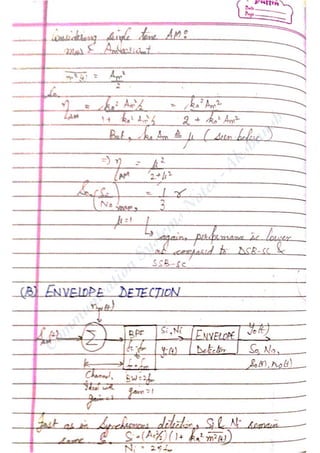 Considering single tone AM:
m(t) = Amcosωmt
m²(t) = Am²/2
So,
η AM = ka² Am²/2 / 1 + ka² Am²/2 = ka² Am² / 2 + ka² Am²
But, ka Am ≜ μ (seen before)
⇒ η AM = μ² / 2+μ²
So, (So/No) max, μ=1 = 1/3 γ
↳ again, performance is lower
as compared to DSB-SC &
SSB-SC
(B) ENVELOPE DETECTION
Σ
BPF
Si, Ni
ENVELOPE
Detector
yo(t)
y(t)
So, No,
so(t), no(t)
Channel
Ideal with
gain=1
BW=2fm
gain=1
Just as in Synchronous detection, Si & Ni remain
same
Si = (Ac²/2)(1 + ka² m²(t))